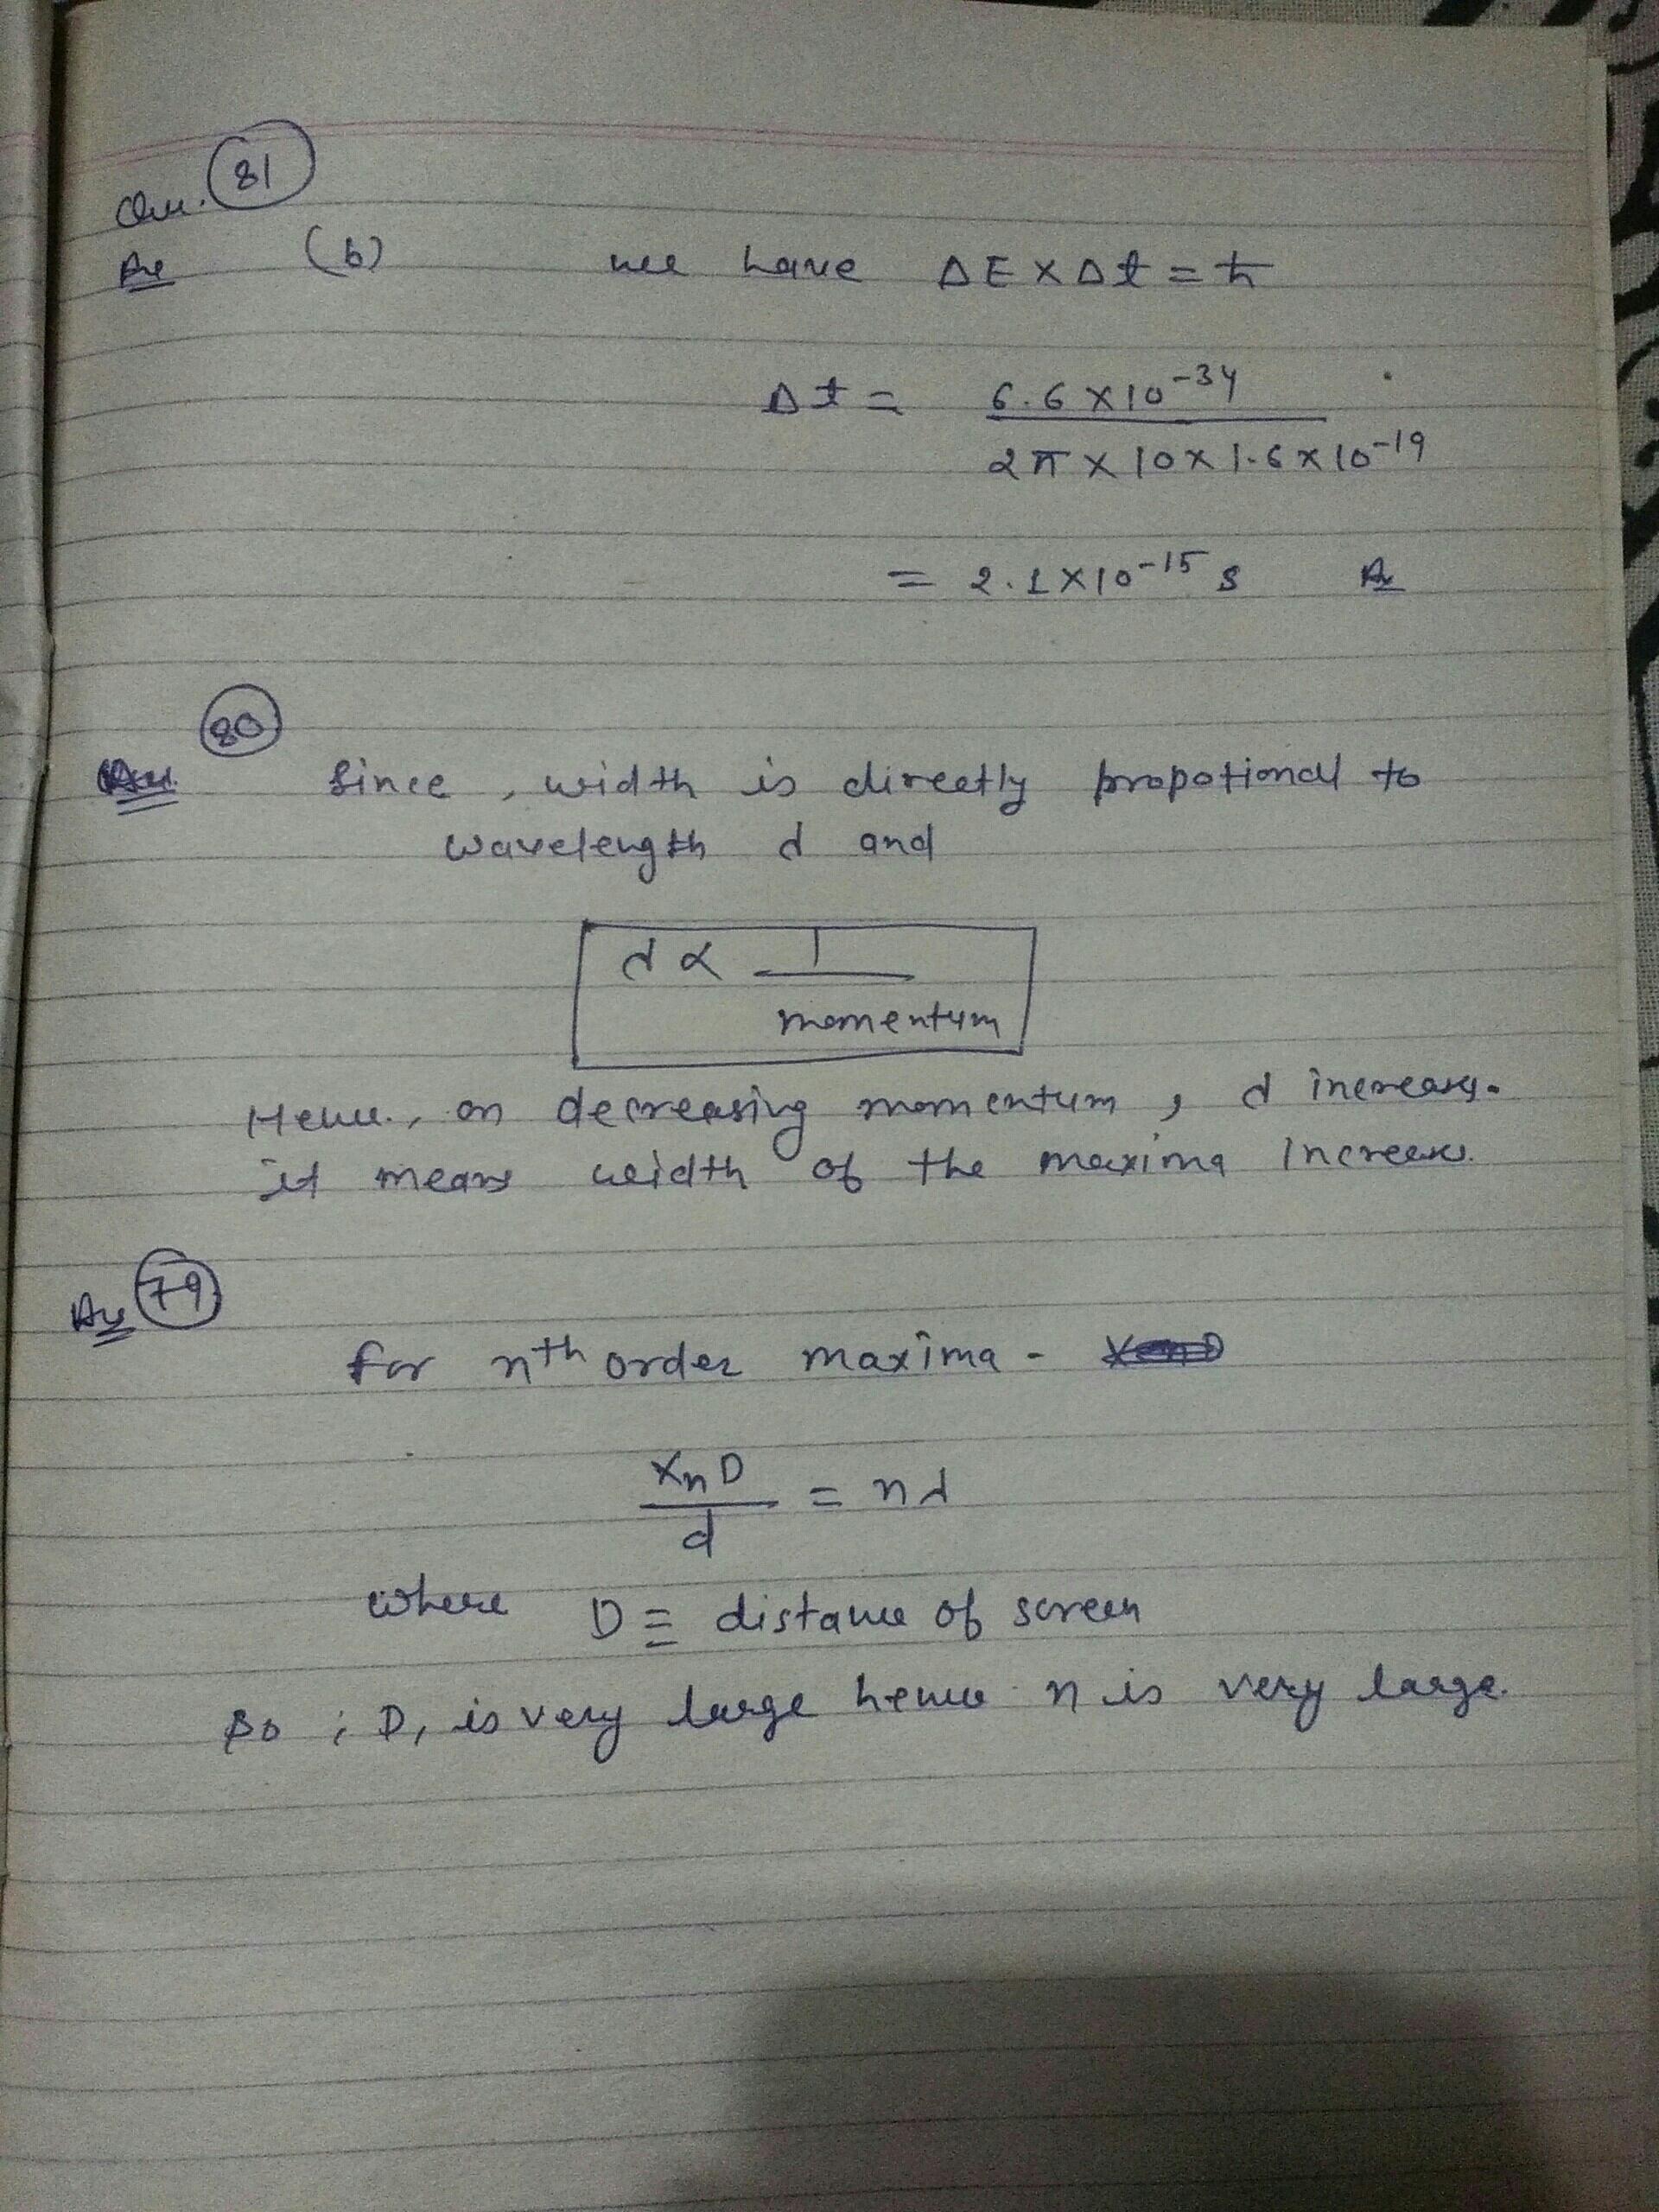 Que. 81
Ans (b) we have ΔE×Δt=ħ
Δt = 6.6×10⁻³⁴
2π×10×1.6×10⁻¹⁹
= 2.1×10⁻¹⁵ s Ans
80
Ans Since, width is directly propotional to
wavelength λ and
λ ∝ 1
momentum
Hence, on decreasing momentum, λ increases.
it means width of the maxima increases.
Ans 79
for nth order maxima -
XnD
d
= nλ
where D = distance of screen
so ; D, is very large hence n is very large.